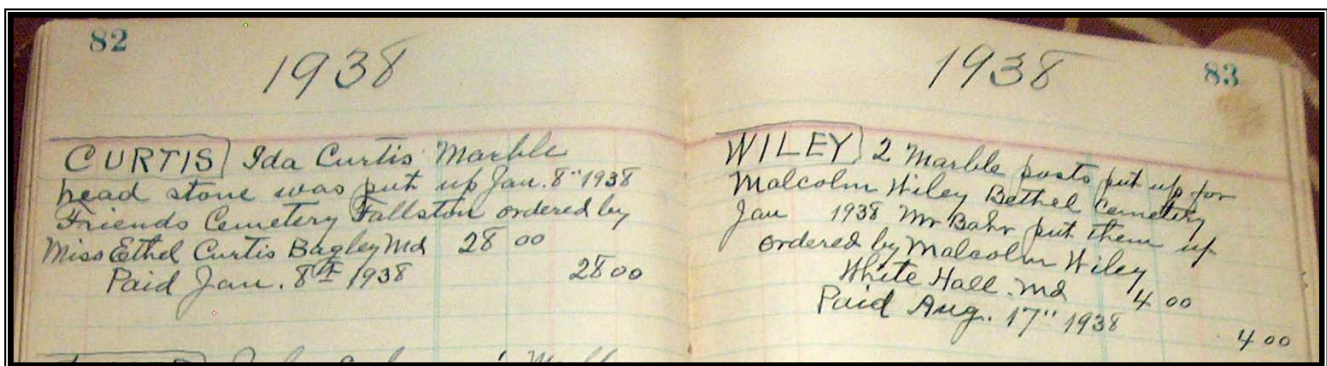 82
1938
CURTIS) Ida Curtis Marble
head stone was put up Jan. 8" 1938
Friends Cemetery Fallston ordered by
Miss Ethel Curtis Bagley Md 28 00
Paid Jan. 8th 1938 28 00
1938
83
WILEY) 2 Marble posts put up for
Malcolm Wiley Bethel Cemetery
Jan 1938 Mr Bahr put them up
ordered by Malcolm Wiley
White Hall. Md 4 00
Paid Aug. 17" 1938
4 00